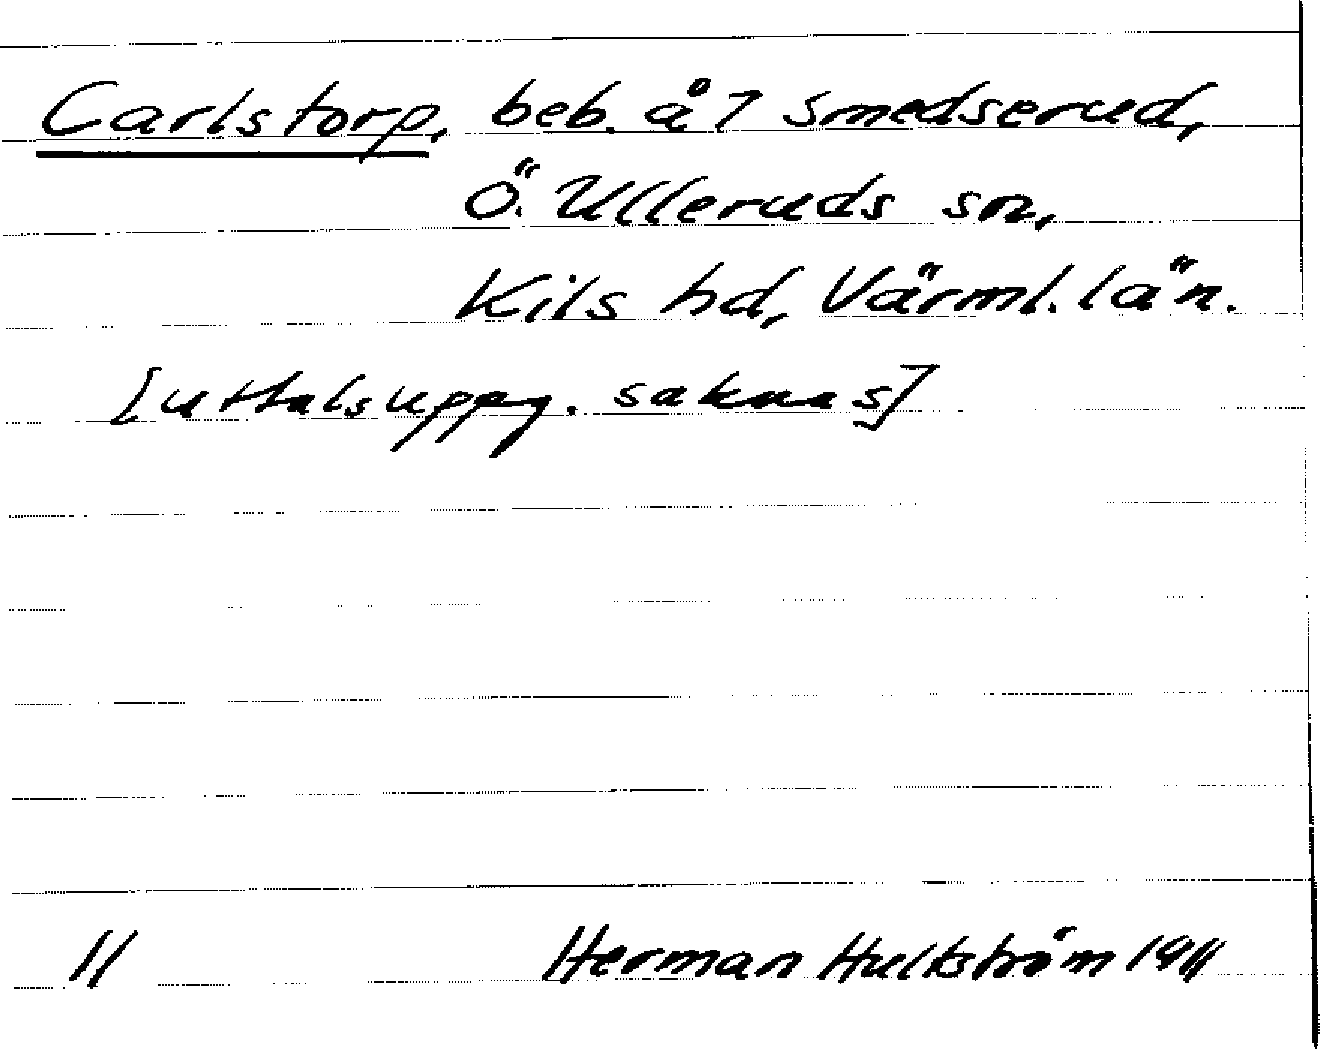 Carlstorp, beb. å 7 Smedserud,
Ö. Ulleruds sn,
Kils hd, Värml. län.
[uttalsuppg. saknas]
11 Herman Hultström 1911